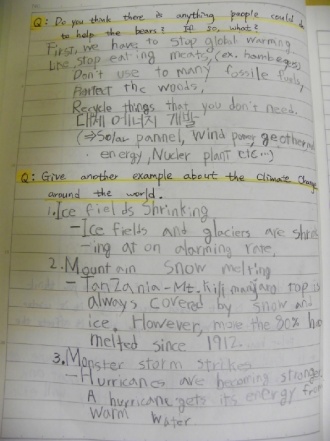 Q: Do you think there is anything people could do
to help the bears? If so, what?
First, we have to stop global warming
stop eating meats, (ex. hamberges)
Don't use to many fossile fuels,
Protect the woods,
Recycle things that you don't need.
대체 에너지 개발
(⇒Solar pannel, wind power, geothermal
energy, Nucler plant etc...)
Q: Give another example about the Climate Change
around the world.
1. Ice fields Shrinking
- Ice fields and glaciers are shrink
-ing at an alarming rate.
2. Mountain Snow melting
- Tanzania - Mt. Kilimanjaro top is
always covered by snow and
ice. However, more the 80% ha
melted since 1912.
3. Monster storm strikes
- Hurricanes are becoming stronger
A hurricane gets its energy from
warm water